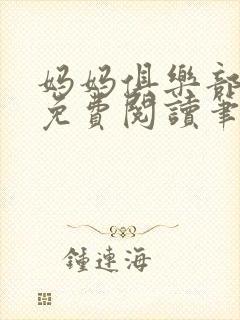 媽媽俱樂部
免費閱讀筆
鍾連海